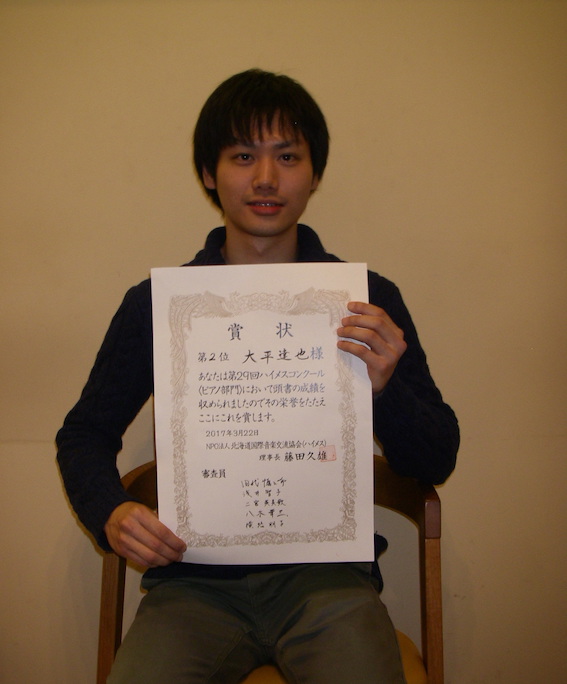 賞状
第2位 大平達也様
あなたは第29回ハイメスコンクール
(ピアノ部門)において頭書の成績を
収められましたのでその栄誉をたたえ
ここにこれを賞します。
2017年3月22日
NPO法人北海道国際音楽交流協会(ハイメス)
理事長 藤田久雄
審査員
浅井智子